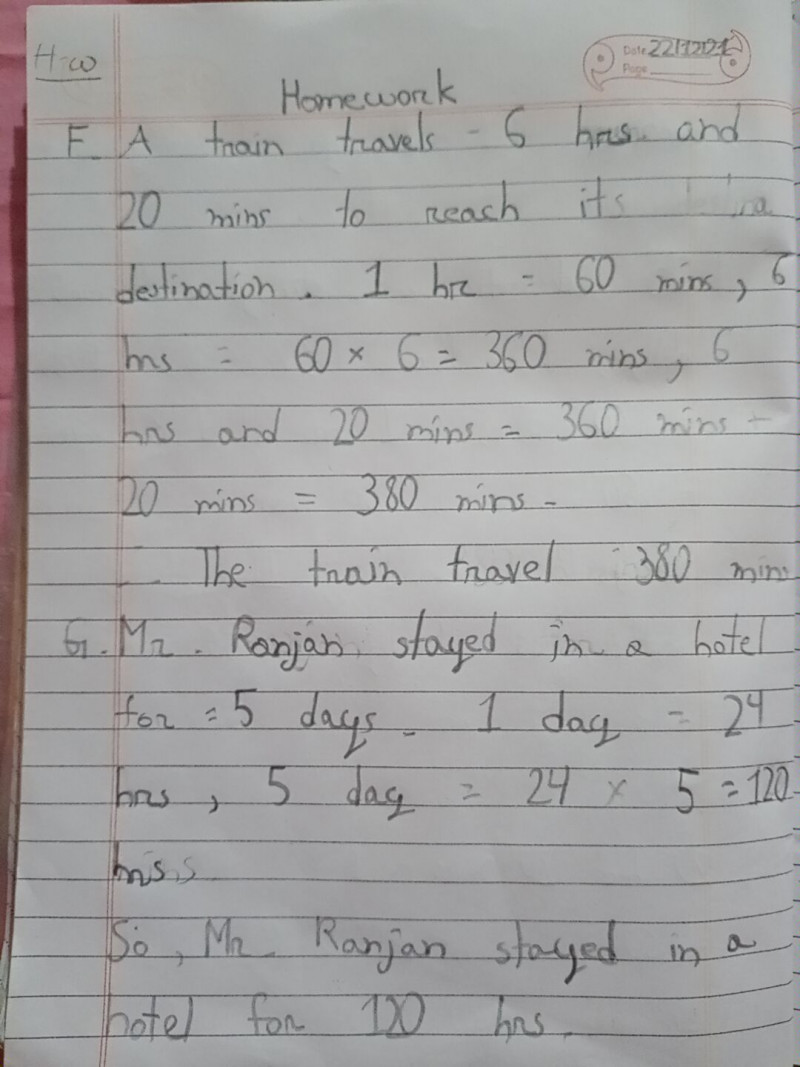 H.W
Date 22/12/21
Page
Homework
F. A train travels - 6 hrs and
20 mins to reach its
destination. 1 hr = 60 mins, 6
hrs = 60 × 6 = 360 mins, 6
hrs and 20 mins = 360 mins +
20 mins = 380 mins -
The train travel 380 mins
G. Mr. Ranjan stayed in a hotel
for = 5 days - 1 day = 24
hrs, 5 day = 24 × 5 = 120
hrs
So, Mr. Ranjan stayed in a
hotel for 120 hrs.